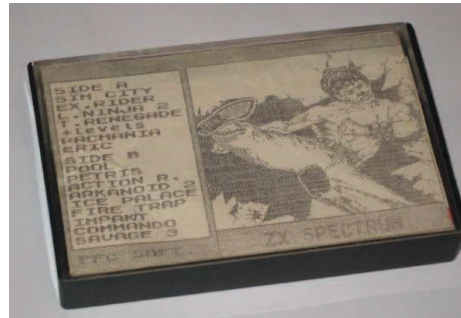 SIDE A
SIM CITY
EX.RIDER
L.NINJA 2
T.RENEGADE
+levels
PACMANIA
ERIC
SIDE B
POOL
PETRIS
ACTION R.
ARKANOID 2
ICE PALACE
FIRE TRAP
IMPAKT
COMMANDO
SAVAGE 3
SOFT.
ZX SPECTRUM